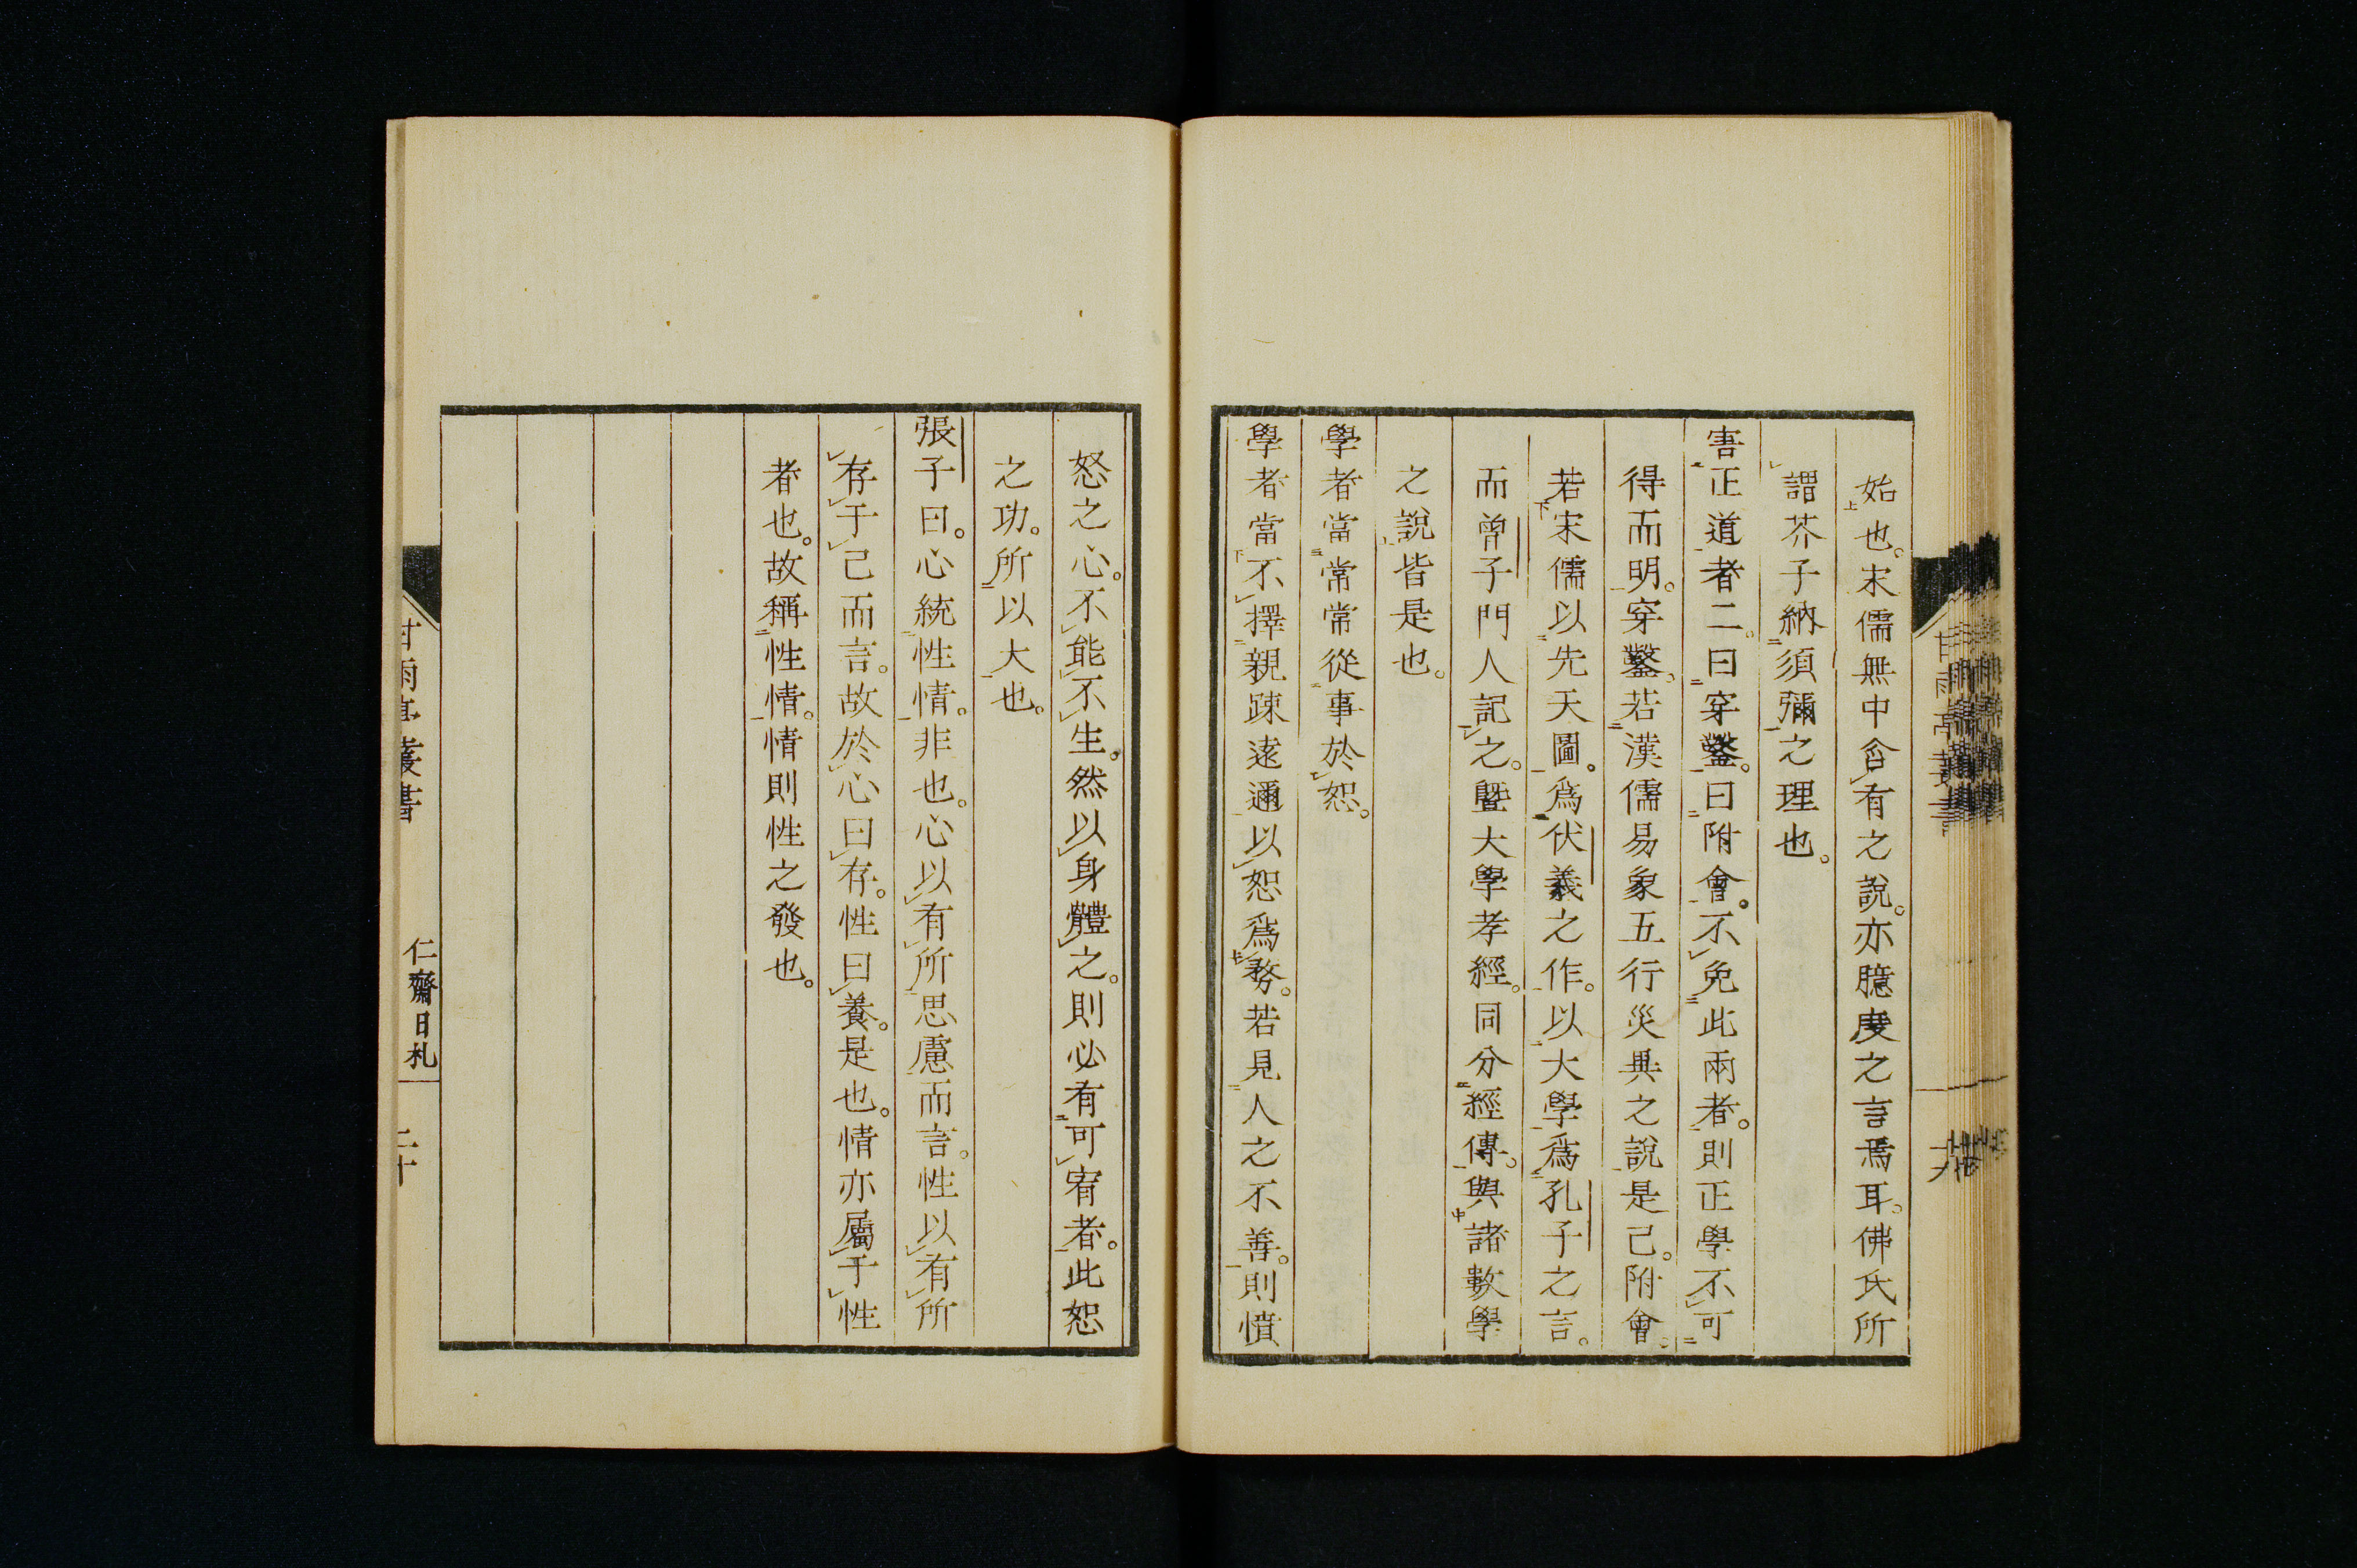 始也。宋儒無中含有之說。亦臆度之言焉耳。佛氏所
謂芥子納須彌之理也。
害正道者二。曰穿鑿。曰附會。不免此兩者。則正學不可
得而明。穿鑿。若漢儒易象五行災異之說是已。附會。
若宋儒以先天圖。爲伏羲之作。以大學爲孔子之言。
而曾子門人記之。曁大學孝經。同分經傳。與諸數學
之說皆是也。
學者當常常從事於恕。
學者當不擇親踈遠邇以恕爲務。若見人之不善。則憤
怒之心。不能不生。然以身體之。則必有可宥者。此恕
之功。所以大也。
張子曰。心統性情。非也。心以有所思慮而言。性以有所
存于己而言。故於心曰存。性曰養。是也。情亦屬于性
者也。故稱性情。情則性之發也。
甘雨亭叢書
仁齋日札
二十